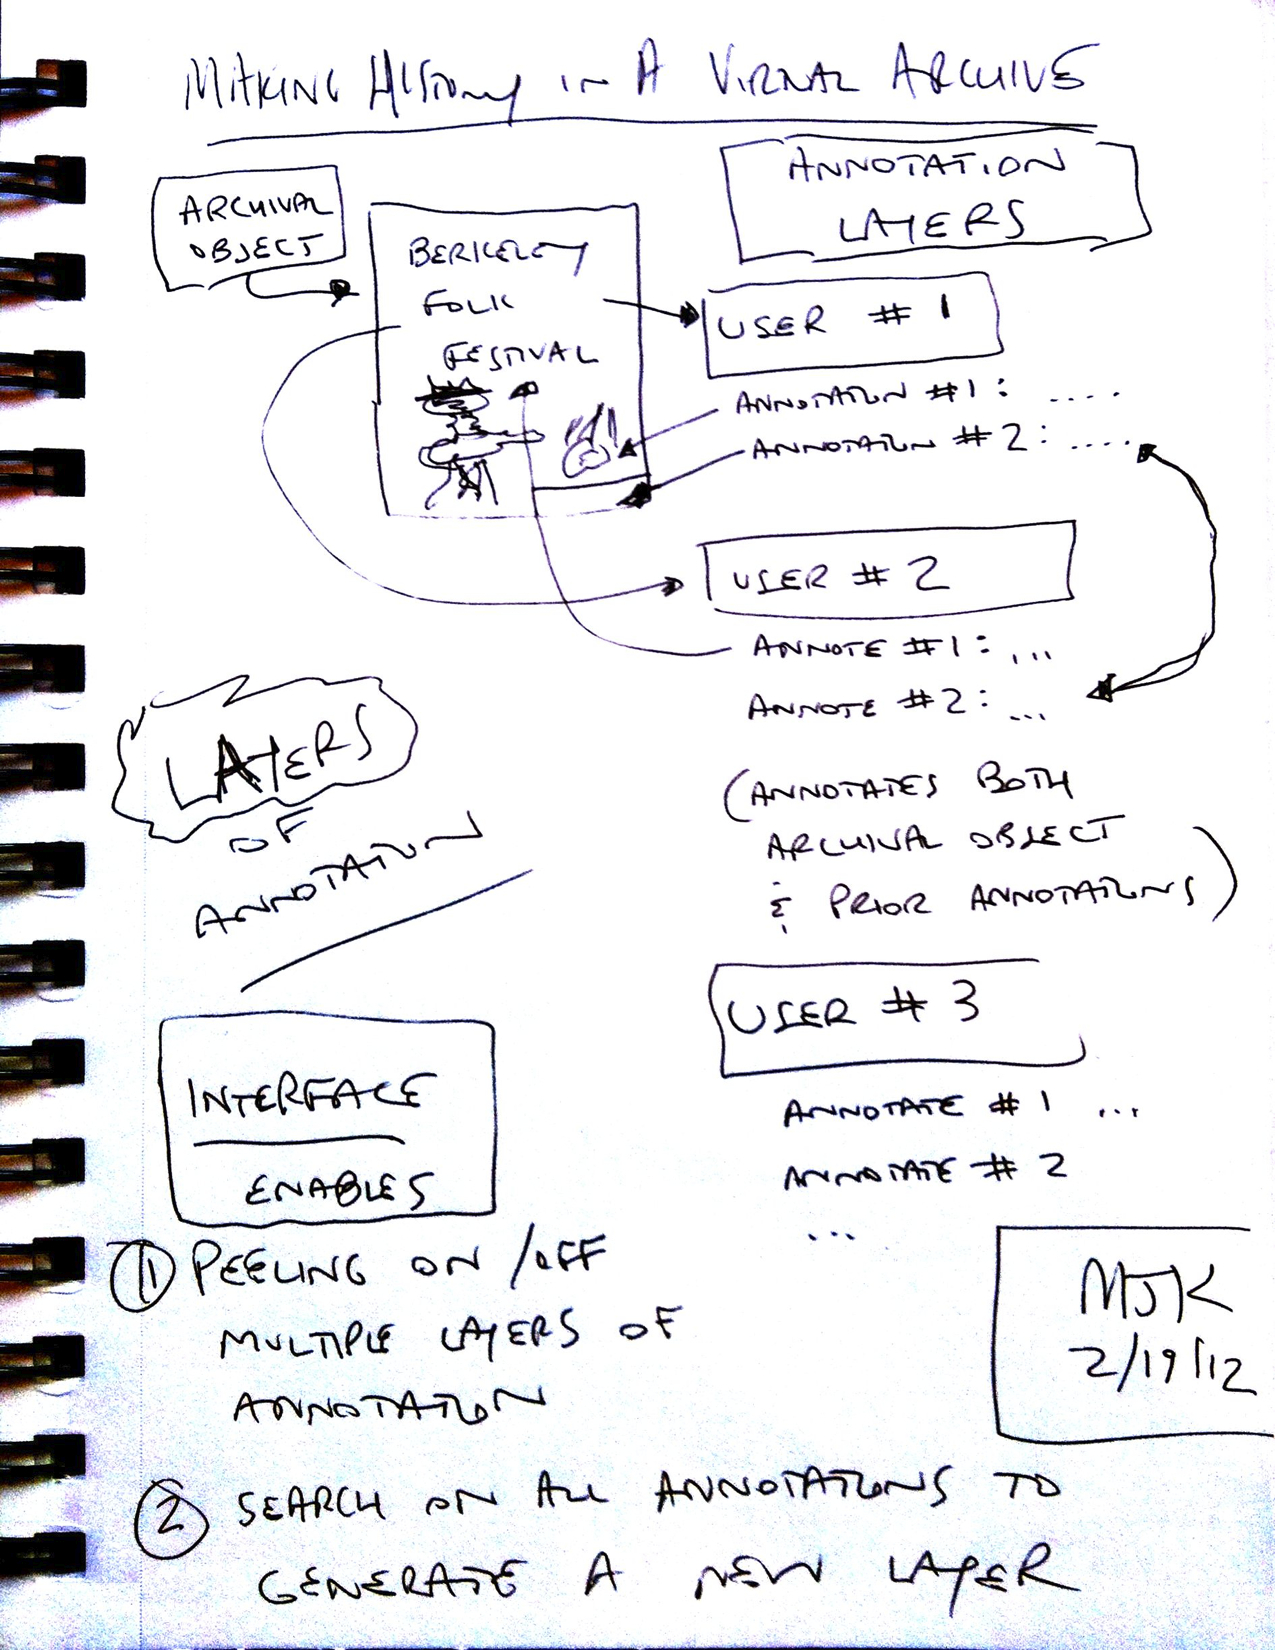 MAKING HISTORY IN A VIRTUAL ARCHIVE
ARCHIVAL
OBJECT
BERKELEY
FOLK
FESTIVAL
ANNOTATION
LAYERS
USER # 1
ANNOTATION #1: ....
ANNOTATION #2: ....
USER # 2
ANNOTE #1: ...
ANNOTE #2: ...
(ANNOTATES BOTH
ARCHIVAL OBJECT
& PRIOR ANNOTATIONS)
USER # 3
ANNOTATE # 1 ...
ANNOTATE # 2
...
LAYERS
OF
ANNOTATION
INTERFACE
ENABLES
1 PEELING ON/OFF
MULTIPLE LAYERS OF
ANNOTATION
2 SEARCH ON ALL ANNOTATIONS TO
GENERATE A NEW LAYER
MJK
2/19/12